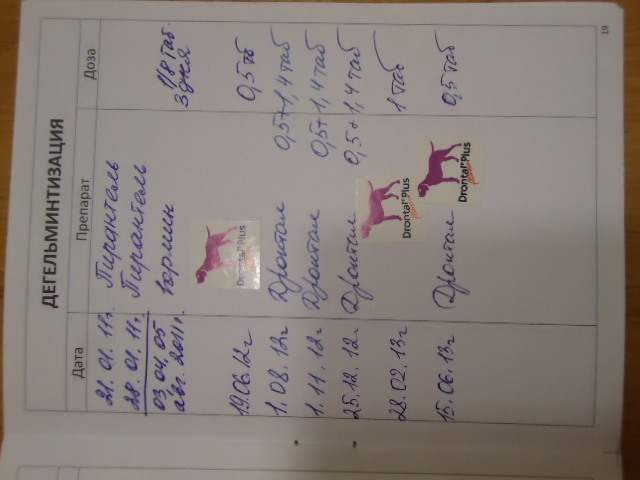 ДЕГЕЛЬМИНТИЗАЦИЯ
Дата Препарат Доза
21. 01. 11г. Пирантель
28. 01. 11г. Пирантель
03 04, 05 Вормин 1/8 таб.
авг. 2011г. 3 дня
19.06.12г Drontal® Plus 0,5 тб
1. 08. 12г Дронтал 0,5+1,4 таб
1. 11. 12г Дронтал 0,5+1,4 таб
25. 12. 12г Дронтал 0,5+1,4 таб
28. 02. 13г Drontal® Plus 1 таб
15. 06. 13г Дронтал Drontal® Plus 0,5 таб
19